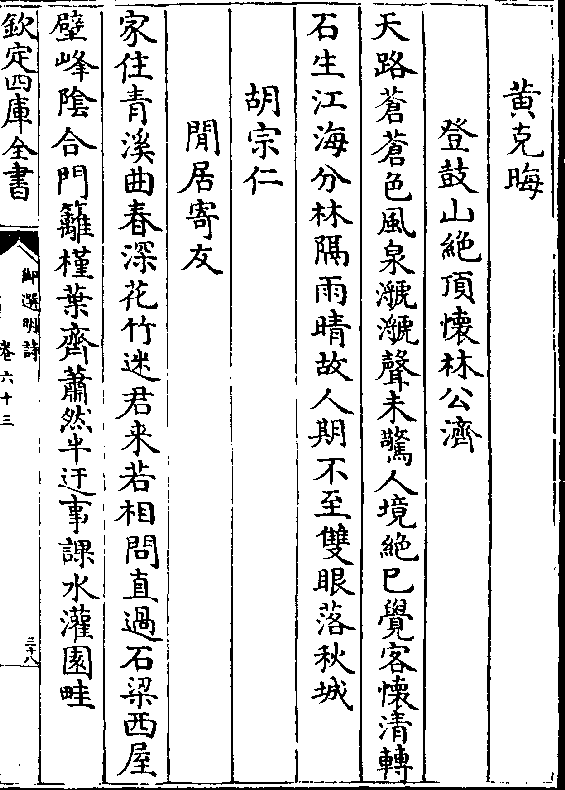 黄克晦
登鼓山絶頂懐林公濟
天路蒼蒼色風泉漉漉聲未驚人境絶已覺客懐清轉
石生江海分林隔雨晴故人期不至雙眼落秋城
胡宗仁
閒居寄友
家住青溪曲春深花竹迷君来若相問直過石梁西屋
壁峰陰合門籬槿葉齊蕭然半迂事課水灌園畦
欽定四庫全書
御選明詩
卷六十三
三十八